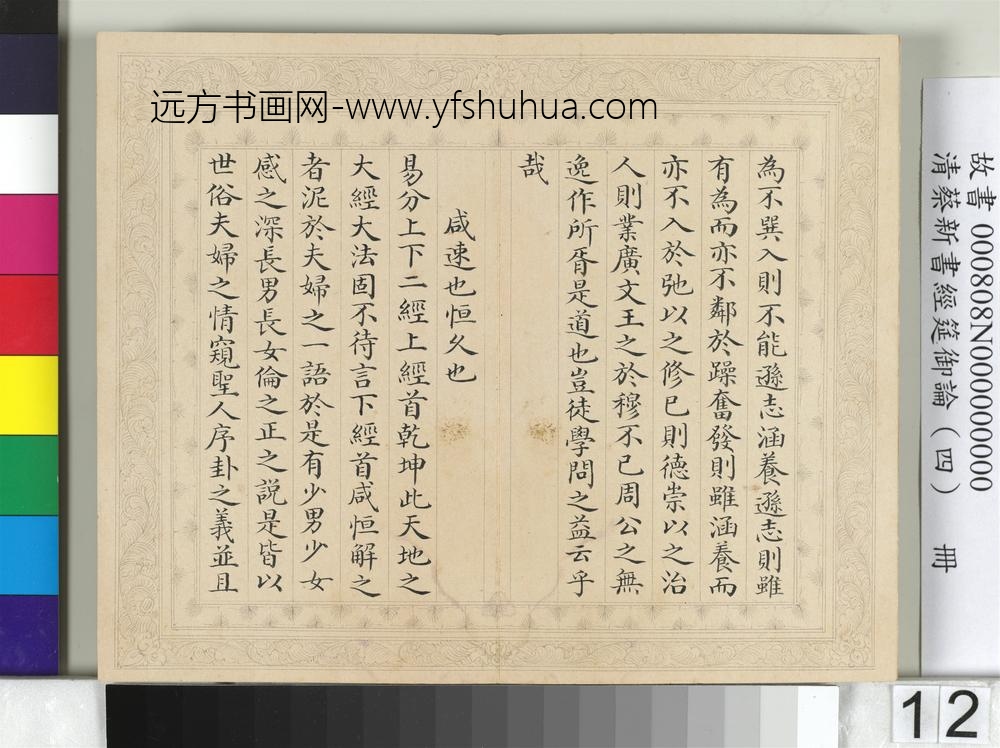 远方书画网-www.yfshuhua.com
為不巽入則不能遜志涵養遜志則雖
有為而亦不鄰於躁奮發則雖涵養而
亦不入於弛以之修已則德崇以之治
人則業廣文王之於穆不已周公之無
逸作所胥是道也豈徒學問之益云乎
哉
咸速也恒久也
易分上下二經上經首乾坤此天地之
大經大法固不待言下經首咸恒解之
者泥於夫婦之一語於是有少男少女
感之深長男長女倫之正之説是皆以
世俗夫婦之情窺聖人序卦之義並且
故書 000808N000000000
清蔡新書經筵御論(四) 冊
12